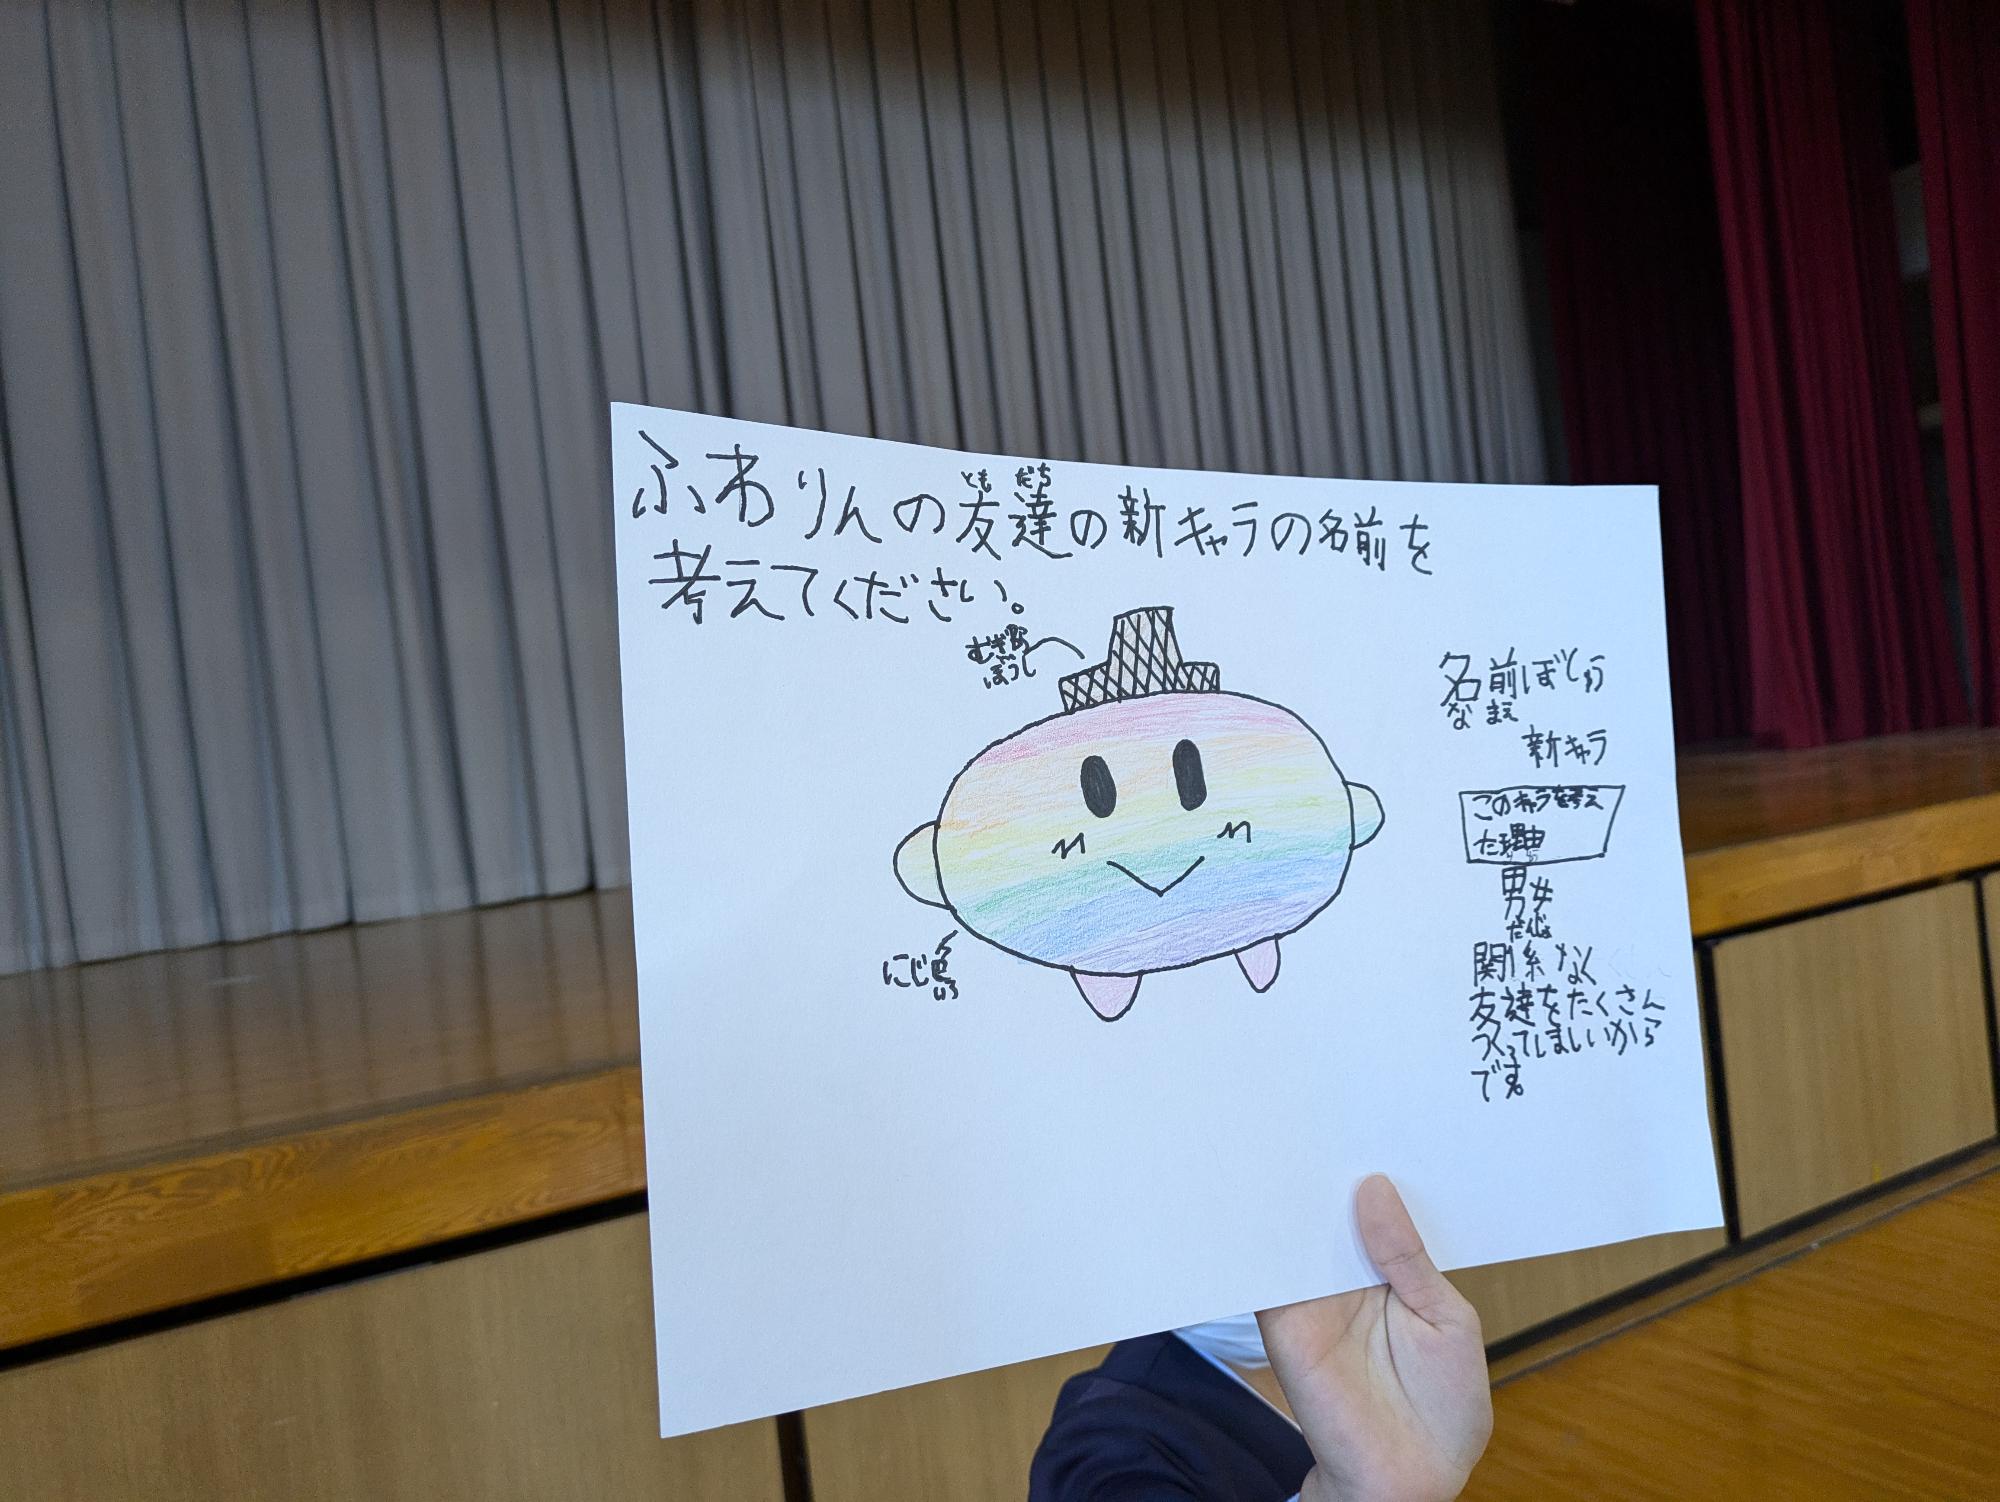 ふわりんの友達の新キャラの名前を
ともだち
考えてください。
むぎ
ぼうし
にじ色
いろ
名前ぼしゅう
なまえ
新キャラ
このキャラを考え
た理由
男女
だんじょ
関係なく
友達をたくさん
つくってほしいから
です。